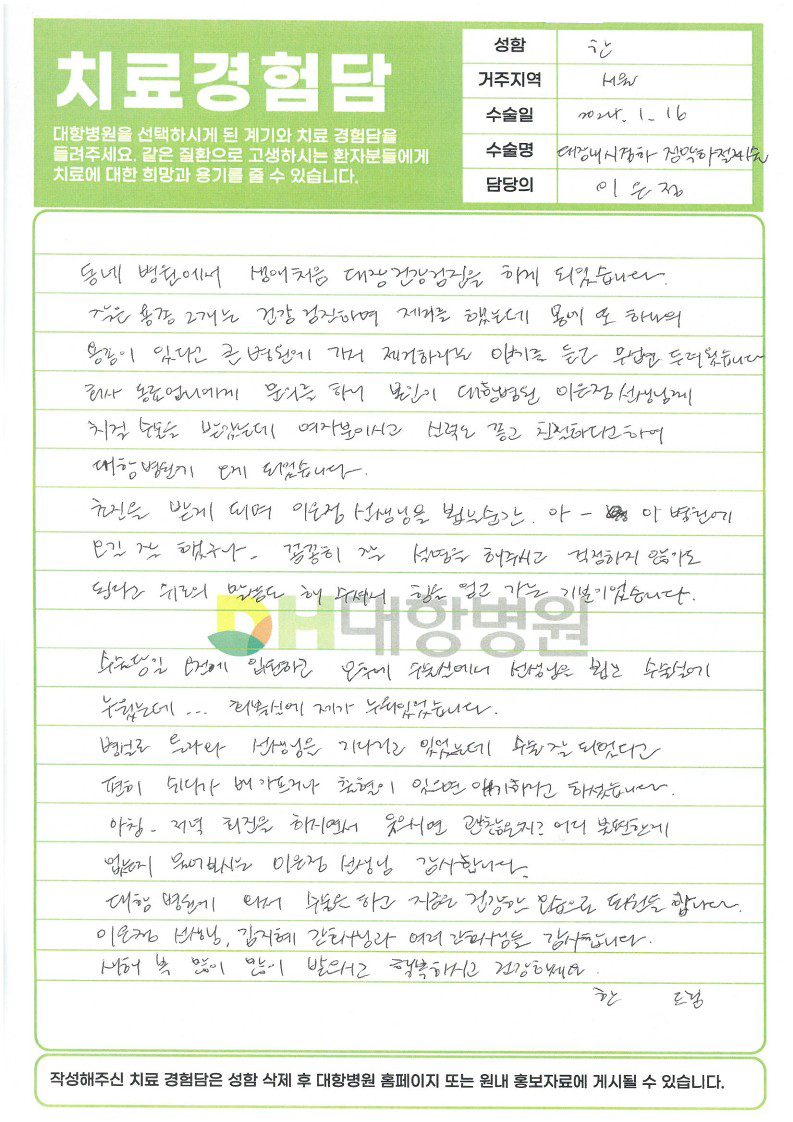 치료경험담
대항병원을 선택하시게 된 계기와 치료 경험담을
들려주세요. 같은 질환으로 고생하시는 환자분들에게
치료에 대한 희망과 용기를 줄 수 있습니다.
성함 한
거주지역 서울
수술일 2024. 1. 16
수술명 대장내시경하 점막하절제술
담당의 이은정
동네 병원에서 생애처음 대장건강검진을 하게 되었습니다.
작은 용종 2개는 건강검진하며 제거를 했는데 몸에 또 하나의
용종이 있다고 큰병원에 가서 제거하라는 얘기를 듣고 무섭고 두려웠습니다
회사 동료언니에게 문의를 하니 본인이 대항병원 이은정선생님께
치질 수술을 받았는데 여자분이시고 실력도 좋고 친절하다고하여
대항병원에 오게 되었습니다.
진을 받게 되며 이은정 선생님을 뵙는순간. 아 - 이 병원에
오길 잘 했구나. 꼼꼼히 잘 설명을 해주시고 걱정하지 않아도
된다고 위로의 말씀도 해 주셔서 힘을 얻고 가는 기분이었습니다.
DH대항병원
수술당일 오전에 입원하고 오후에 수술실에서 선생님을 뵙고 수술실에
누웠는데... 회복실에 제가 누워있었습니다.
병실로 올라와 선생님을 기다리고 있었는데 수술 잘 되었다고
편히 쉬다가 배가프거나 출혈이 있으면 얘기하라고 하셨습니다.
아침. 저녁 회진을 하시면서 웃으시면 괜찮은지? 어디 불편한게
없는지 물어보시는 이은정 선생님 감사합니다.
대항 병원에 와서 수술을 하고 지금은 건강한 모습으로 퇴원을 합니다.
이은정 선생님, 김지혜 간호사님과 여러 간호사님들 감사합니다.
새해 복 많이 많이 받으시고 행복하시고 건강하세요.
한 드림
작성해주신 치료 경험담은 성함 삭제 후 대항병원 홈페이지 또는 원내 홍보자료에 게시될 수 있습니다.